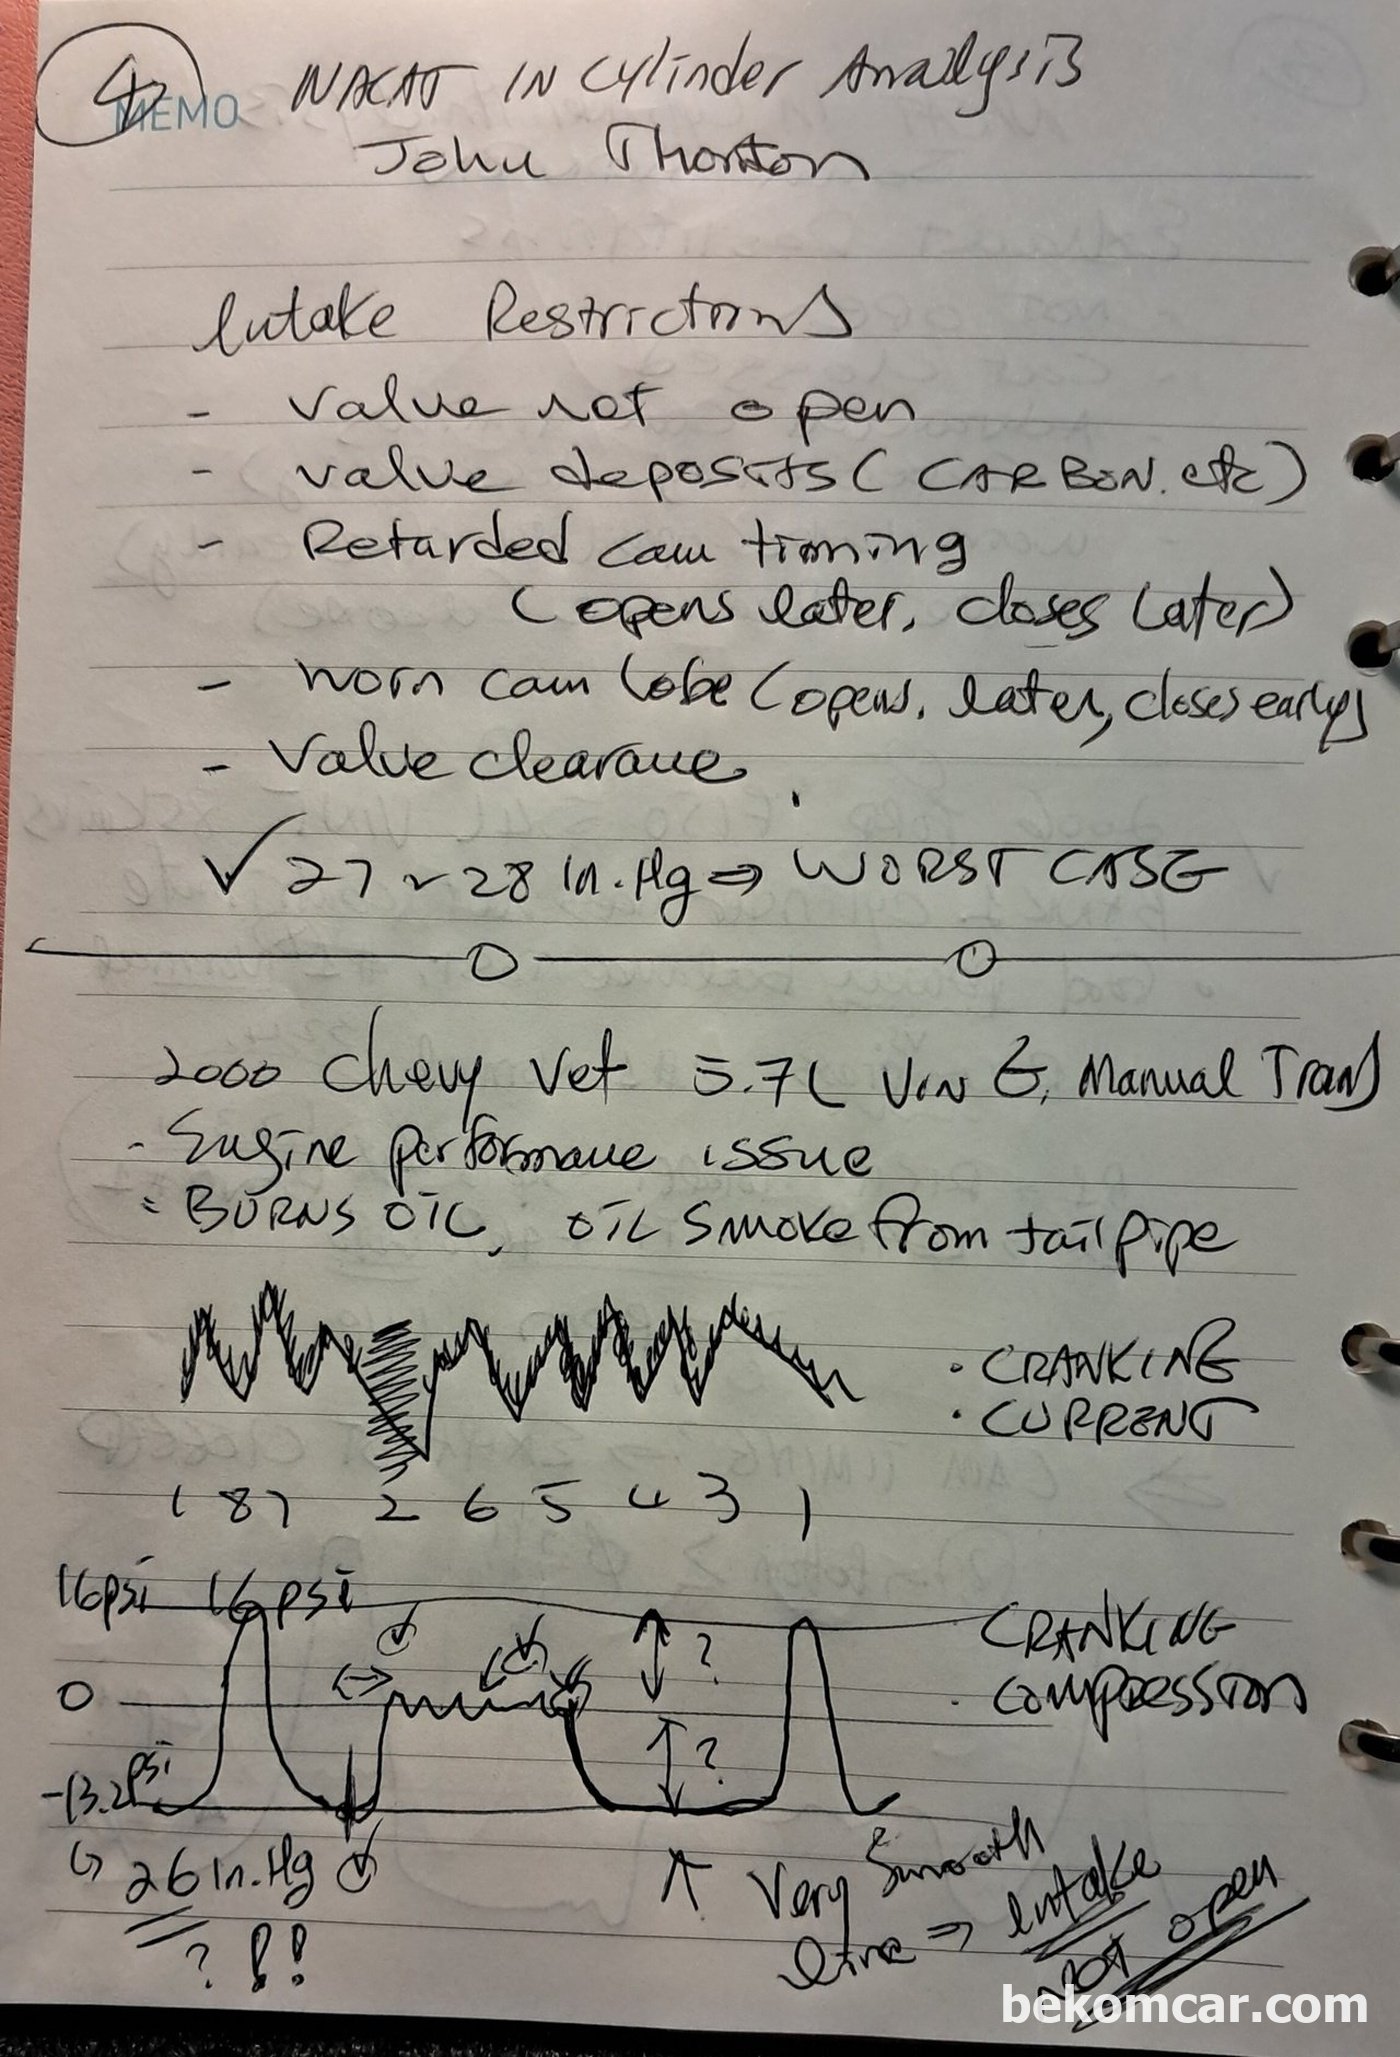 4
MEMO
NACAT IN Cylinder Analysis
John Thornton
Intake Restrictions
- Valve not open
- valve deposits ( CARBON. etc )
- Retarded cam timing
( opens later, closes later )
- worn cam lobe ( opens. later, closes early )
- Valve clearance
✓ 27 ~ 28 in.Hg ⇒ WORST CASE
2000 Chevy Vet 5.7L VIN G, Manual Trans
- Engine performance issue
- BURNS OIL, OIL Smoke from tail pipe
· CRANKING
· CURRENT
1 8 7 2 6 5 4 3 1
16psi 16psi
CRANKING
0 ? · compression
-13.2psi ?
26 in.Hg
? !!
↑ Very Smooth
line ⇒ intake
NOT open
bekomcar.com